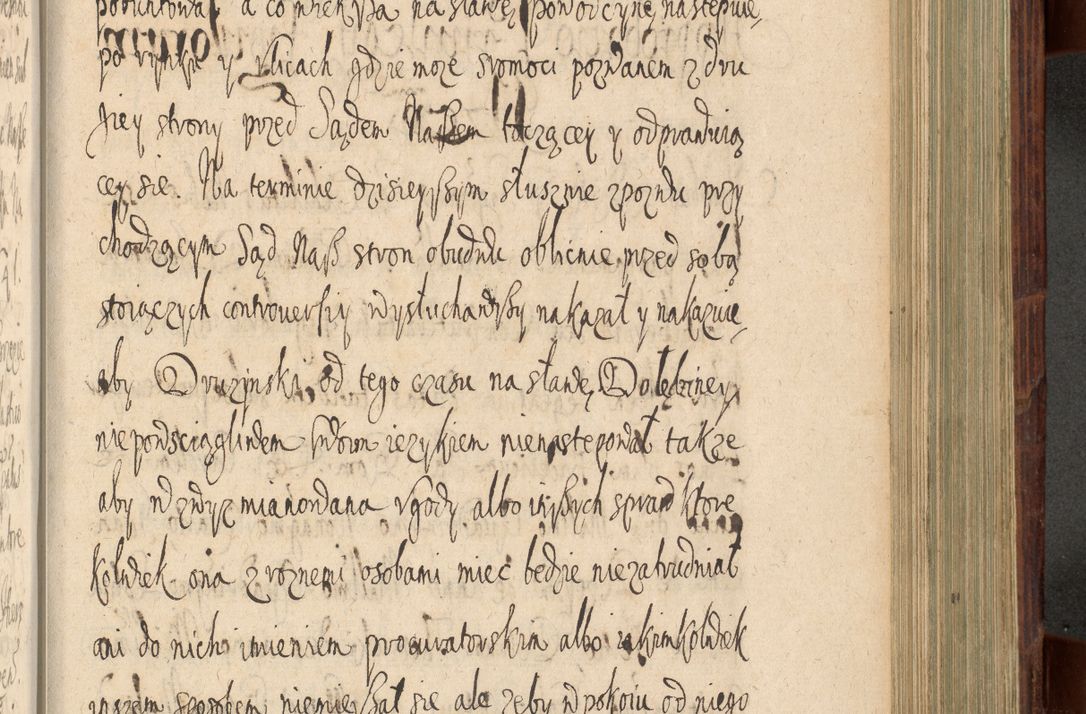 pobuntował a co więkßa na sławę powodcynę nastempuie,
po rynku y vlicach gdzie może sromoci pozwanem z dru
giey strony przed Sądem Naßem toczącey y odprawuią
cey sie. Na terminie dzisieyßym słusznie zpozwu przy
chodzącym Sąd Naß stron obudwu oblicnie przed sobą
stoiączych controuersiy wysłuchawßy nakazał y nakazuie,
aby Druzynski od tego czasu na sławę Dolębiney
niepowsciągliwem swoim ięzykiem nienastempował także
aby w zwyz mianowdana vgody albo inßych spraw ktore
kolwiek ona z roznemi osobami miec będzie niezatrudniał
ani do nich imieniem procuratorskim albo iakimkolwiek
inszem sposobem niemießał się ale żeby w pokoiu od niego